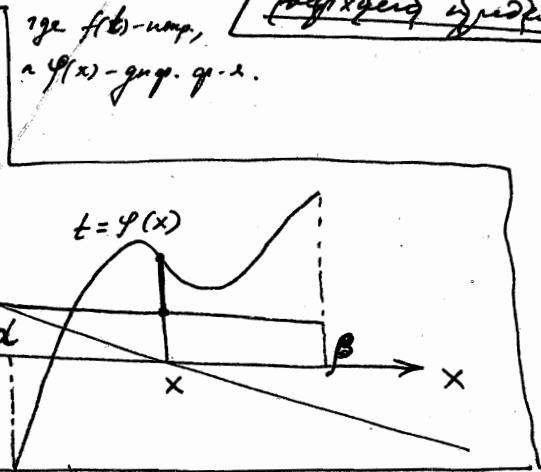 где f(t)-непр.,
а φ(x)-диф. ф-я.
t = φ(x)
α
β
x
x